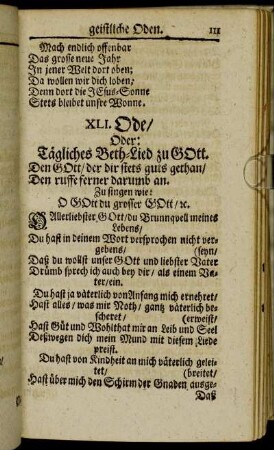 geistliche Oden. 111
Mach endlich offenbar
Das grosse neue Jahr
In jener Welt dort oben;
Da wollen wir dich loben/
Denn dort die JEsus-Sonne
Stets bleibet unsre Wonne.
XLI. Ode/
Oder:
Tägliches Beth-Lied zu GOtt.
Den GOtt/ der dir stets guts gethan/
Den ruffe ferner darumb an.
Zu singen wie:
O GOtt du grosser GOtt/ ꝛc.
Allerliebster GOtt/ du Brunnquell meines
Lebens/
Du hast in deinem Wort versprochen nicht ver-
gebens/ (seyn/
Daß du wollst unser GOtt und liebster Vater
Drümb sprech ich auch bey dir/ als einem Va-
ter/ ein.
Du hast ja väterlich von Anfang mich ernehret/
Hast alles/ was mir Noth/ gantz väterlich be-
scheret/ (erweist/
Hast Güt und Wohlthat mir an Leib und Seel
Deßwegen dich mein Mund mit diesem Liede
preist.
Du hast von Kindheit an mich väterlich gelei-
tet/ (breitet/
Hast über mich den Schirm der Gnaden ausge-
Daß